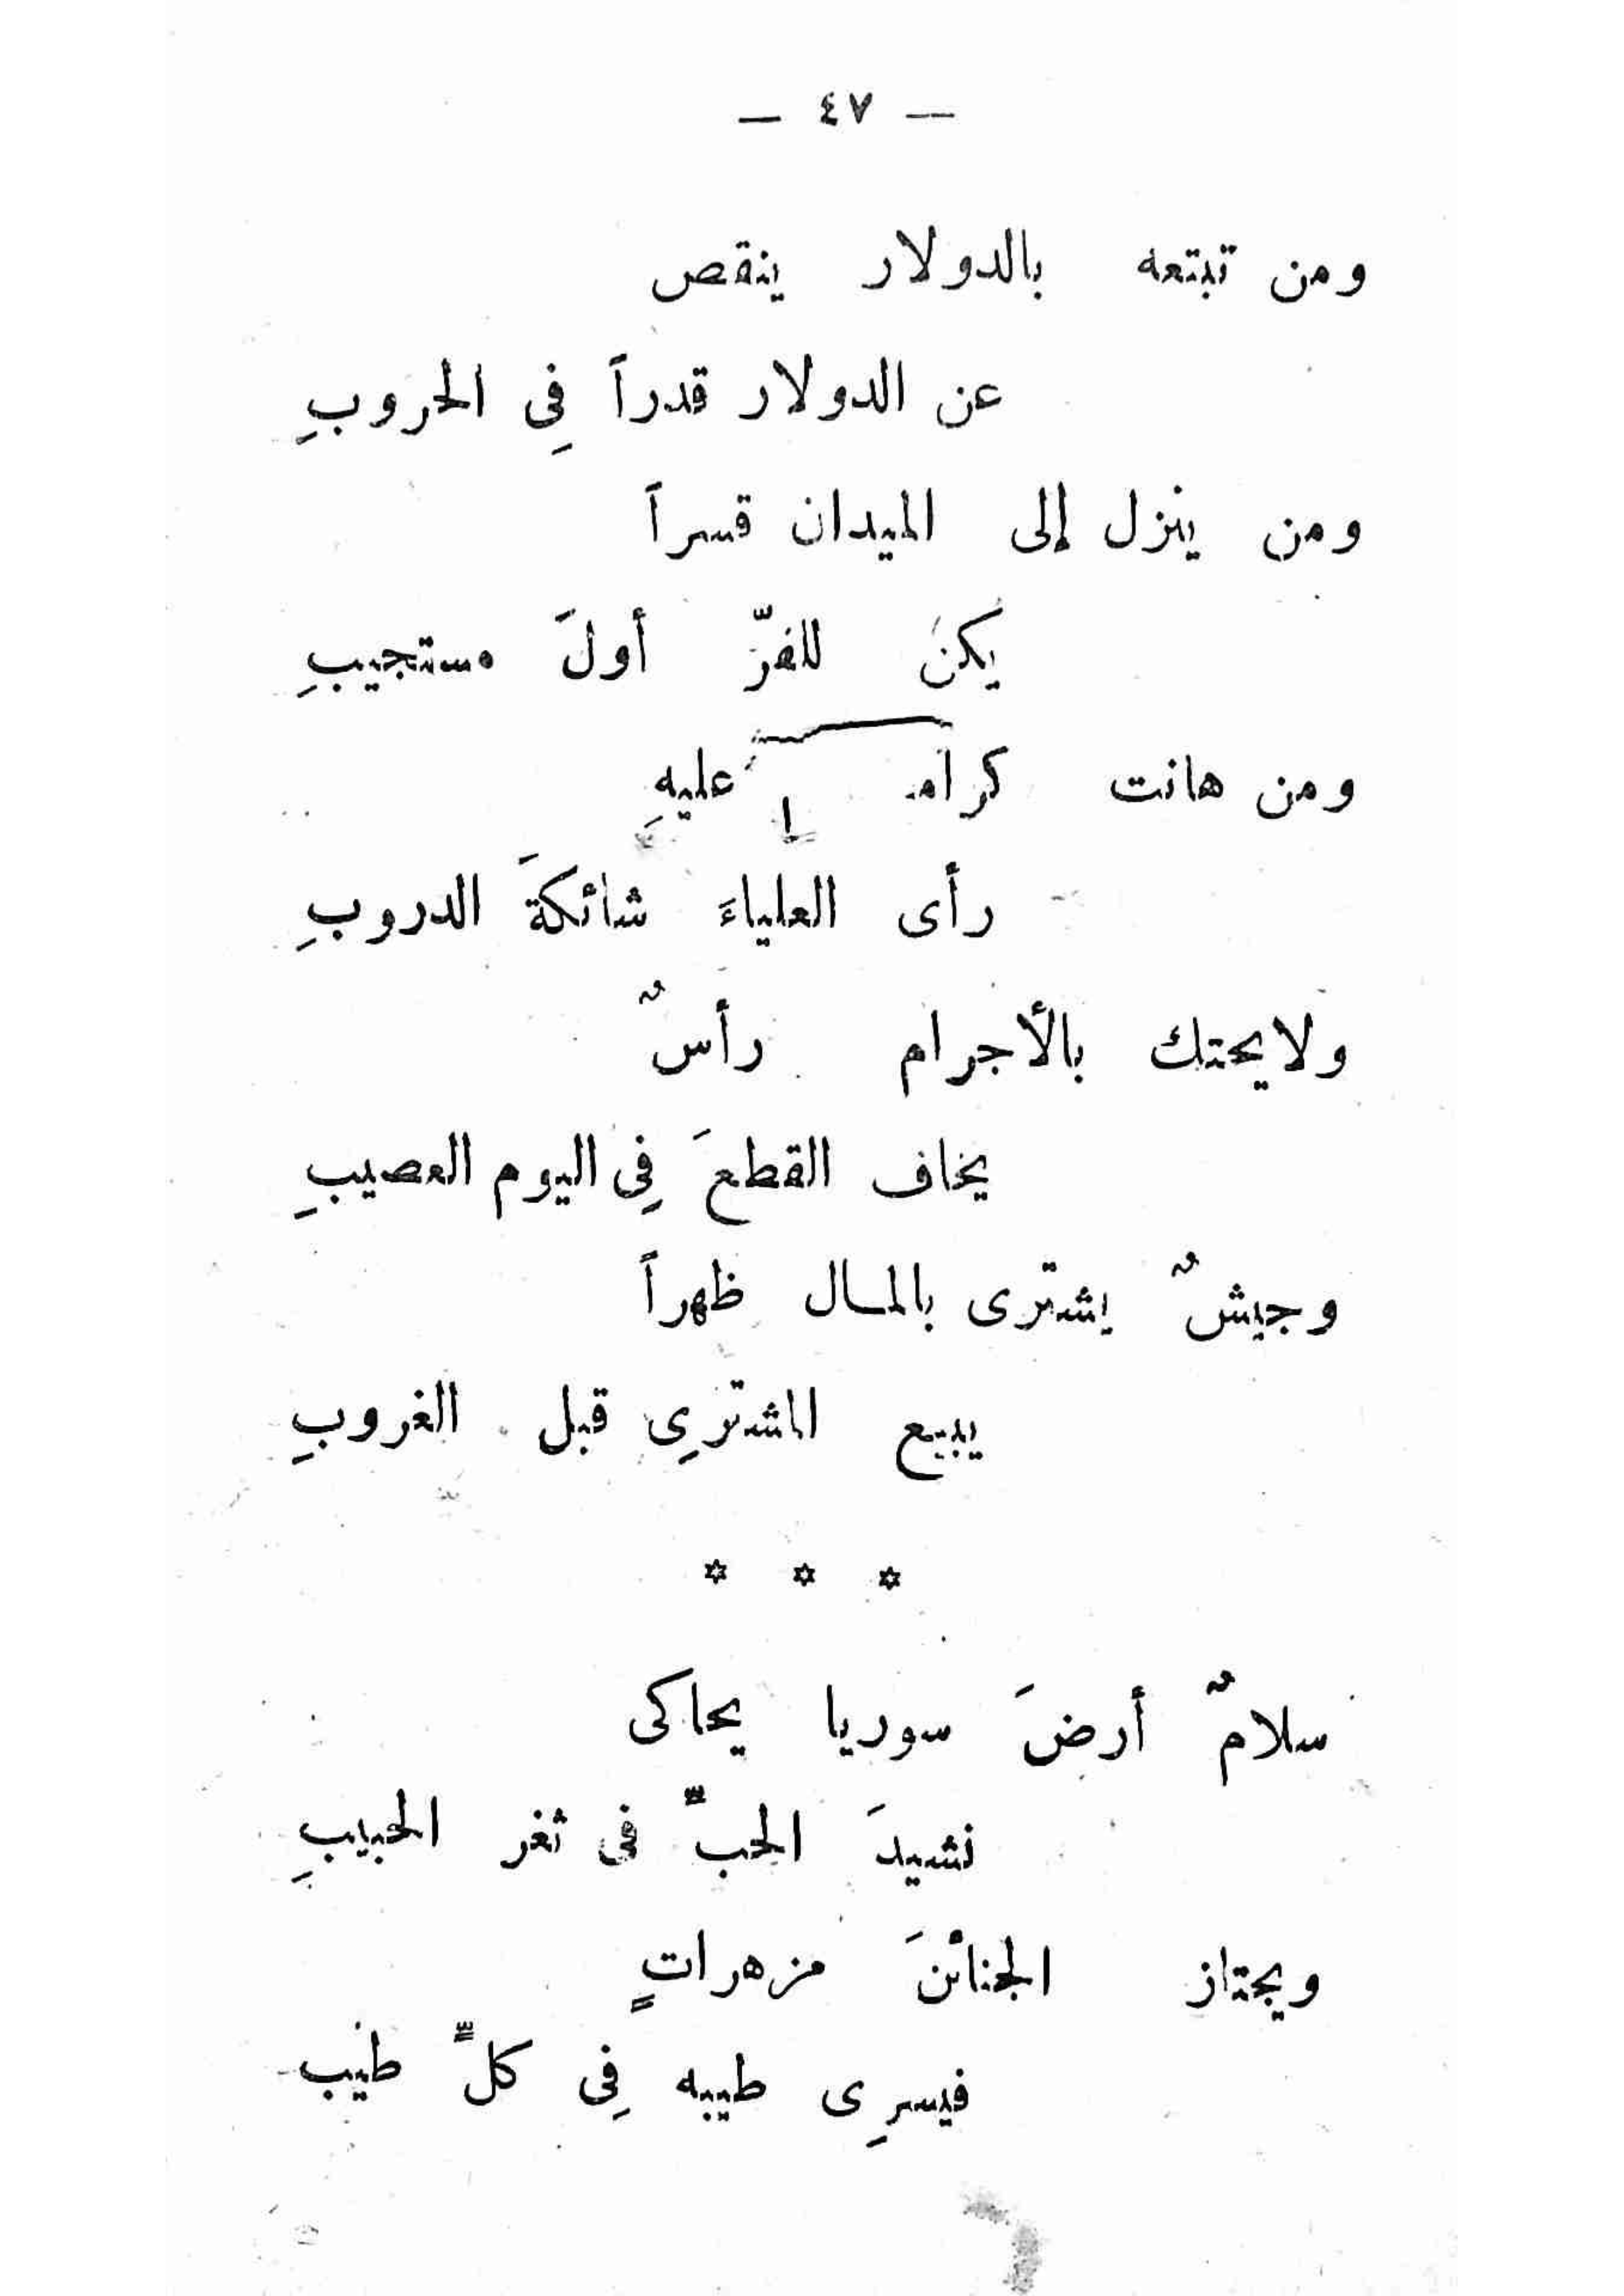 — ٤٧ —
ومن تبتعه بالدولار ينقص
عن الدولار قدراً فِى الحروبِ
ومن ينزل إلى الميدان قسراً
يكن للفرّ أولَ مستجيبِ
ومن هانت عليهِ
رأى العلياءَ شائكةَ الدروبِ
ولايحتك بالأجرام رأسٌ
يخاف القطعَ فِى اليوم العصيبِ
وجيشٌ يشترى بالمال ظهراً
يبيع المشترِى قبل الغروبِ
* * *
سلامٌ أرضَ سوريا يحاكى
نشيدَ الحبِّ فى ثغر الحبيبِ
ويجتاز الجنائنَ مزهراتٍ
فيسرِى طيبه فِى كلِّ طيب